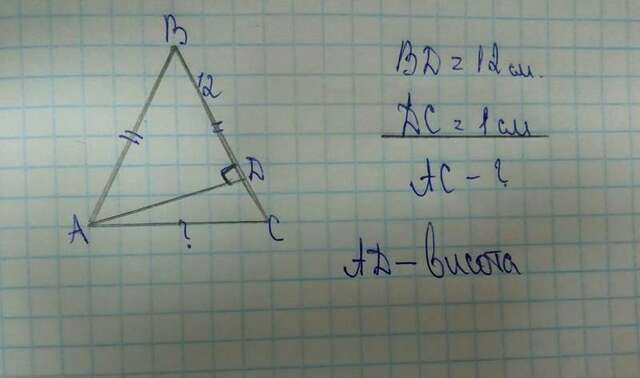 B
12
D
A
?
C
BD = 12 см.
DC = 1 см
AC - ?
AD - висота